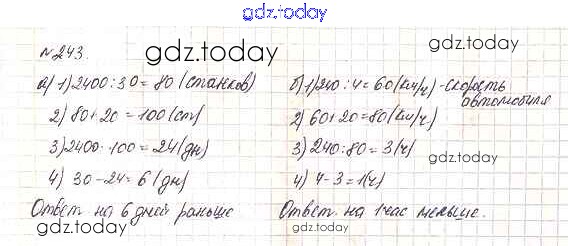 gdz.today
№243.
gdz.today
gdz.today
а) 1) 2400:30= 80 (станков)
2) 80+20 = 100 (ст)
3) 2400:100 = 24 (дн)
4) 30-24=6 (дн)
Ответ на 6 дней раньше
gdz.today
б) 1) 240:4=60 (км/ч) - скорость
автомобиля
2) 60+20=80 (км/ч)
3) 240:80=3 (ч)
gdz.today
4) 4-3=1(ч)
Ответ на 1 час меньше.
gdz.today